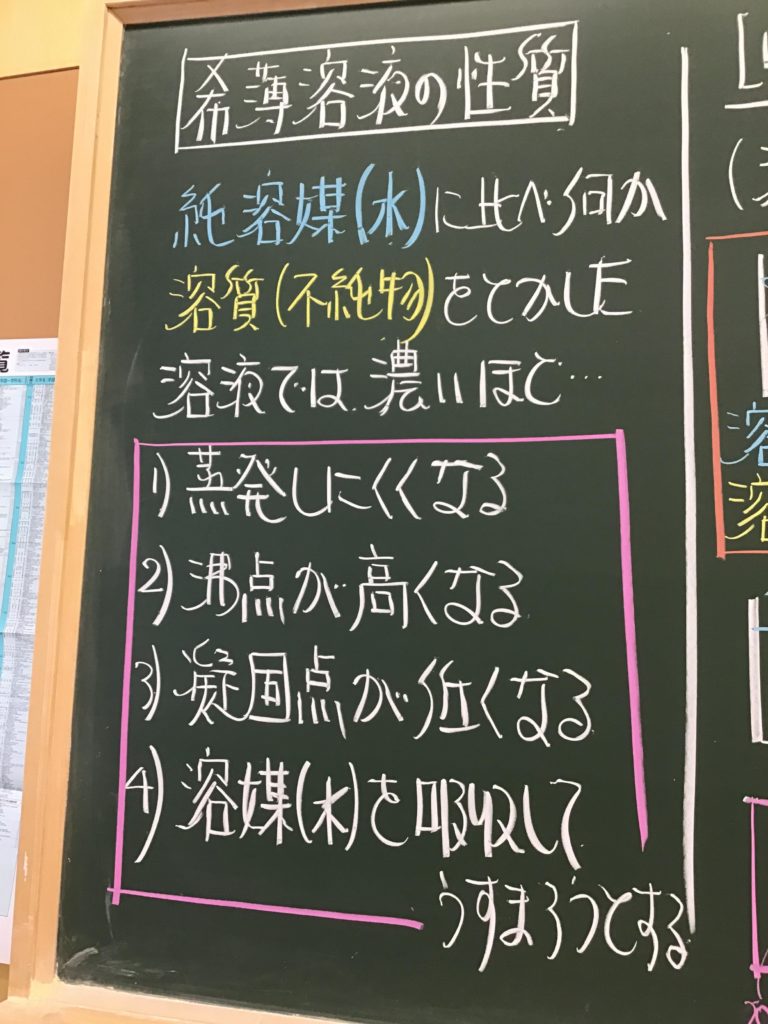 希薄溶液の性質
純溶媒(水)に比べ何か
溶質(不純物)をとかした
溶液では、濃いほど…
1) 蒸発しにくくなる
2) 沸点が高くなる
3) 凝固点が低くなる
4) 溶媒(水)を吸収して
うすまろうとする
覧
溶
溶